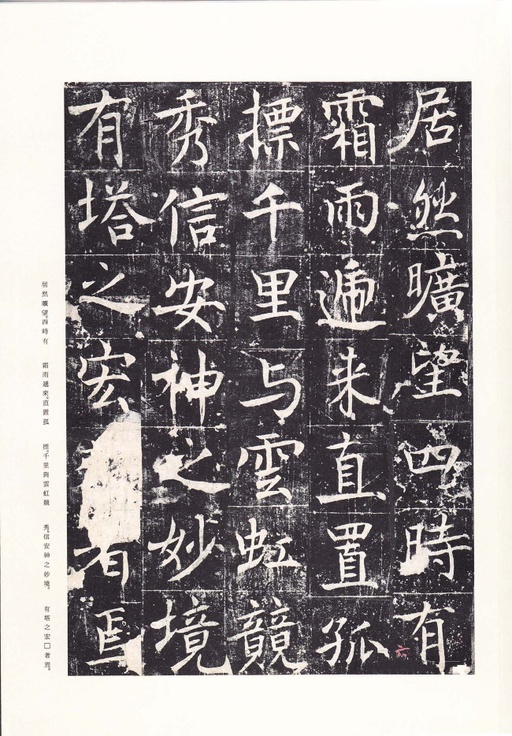 居然曠望四時有
霜雨遞来直置孤
摽千里与雲虹競
秀信安神之妙境
有塔之宏 者焉
六
居然曠望。四時有
霜雨遞來。直置孤
摽。千里與雲虹競
秀。信安神之妙境。
有塔之宏□者焉。